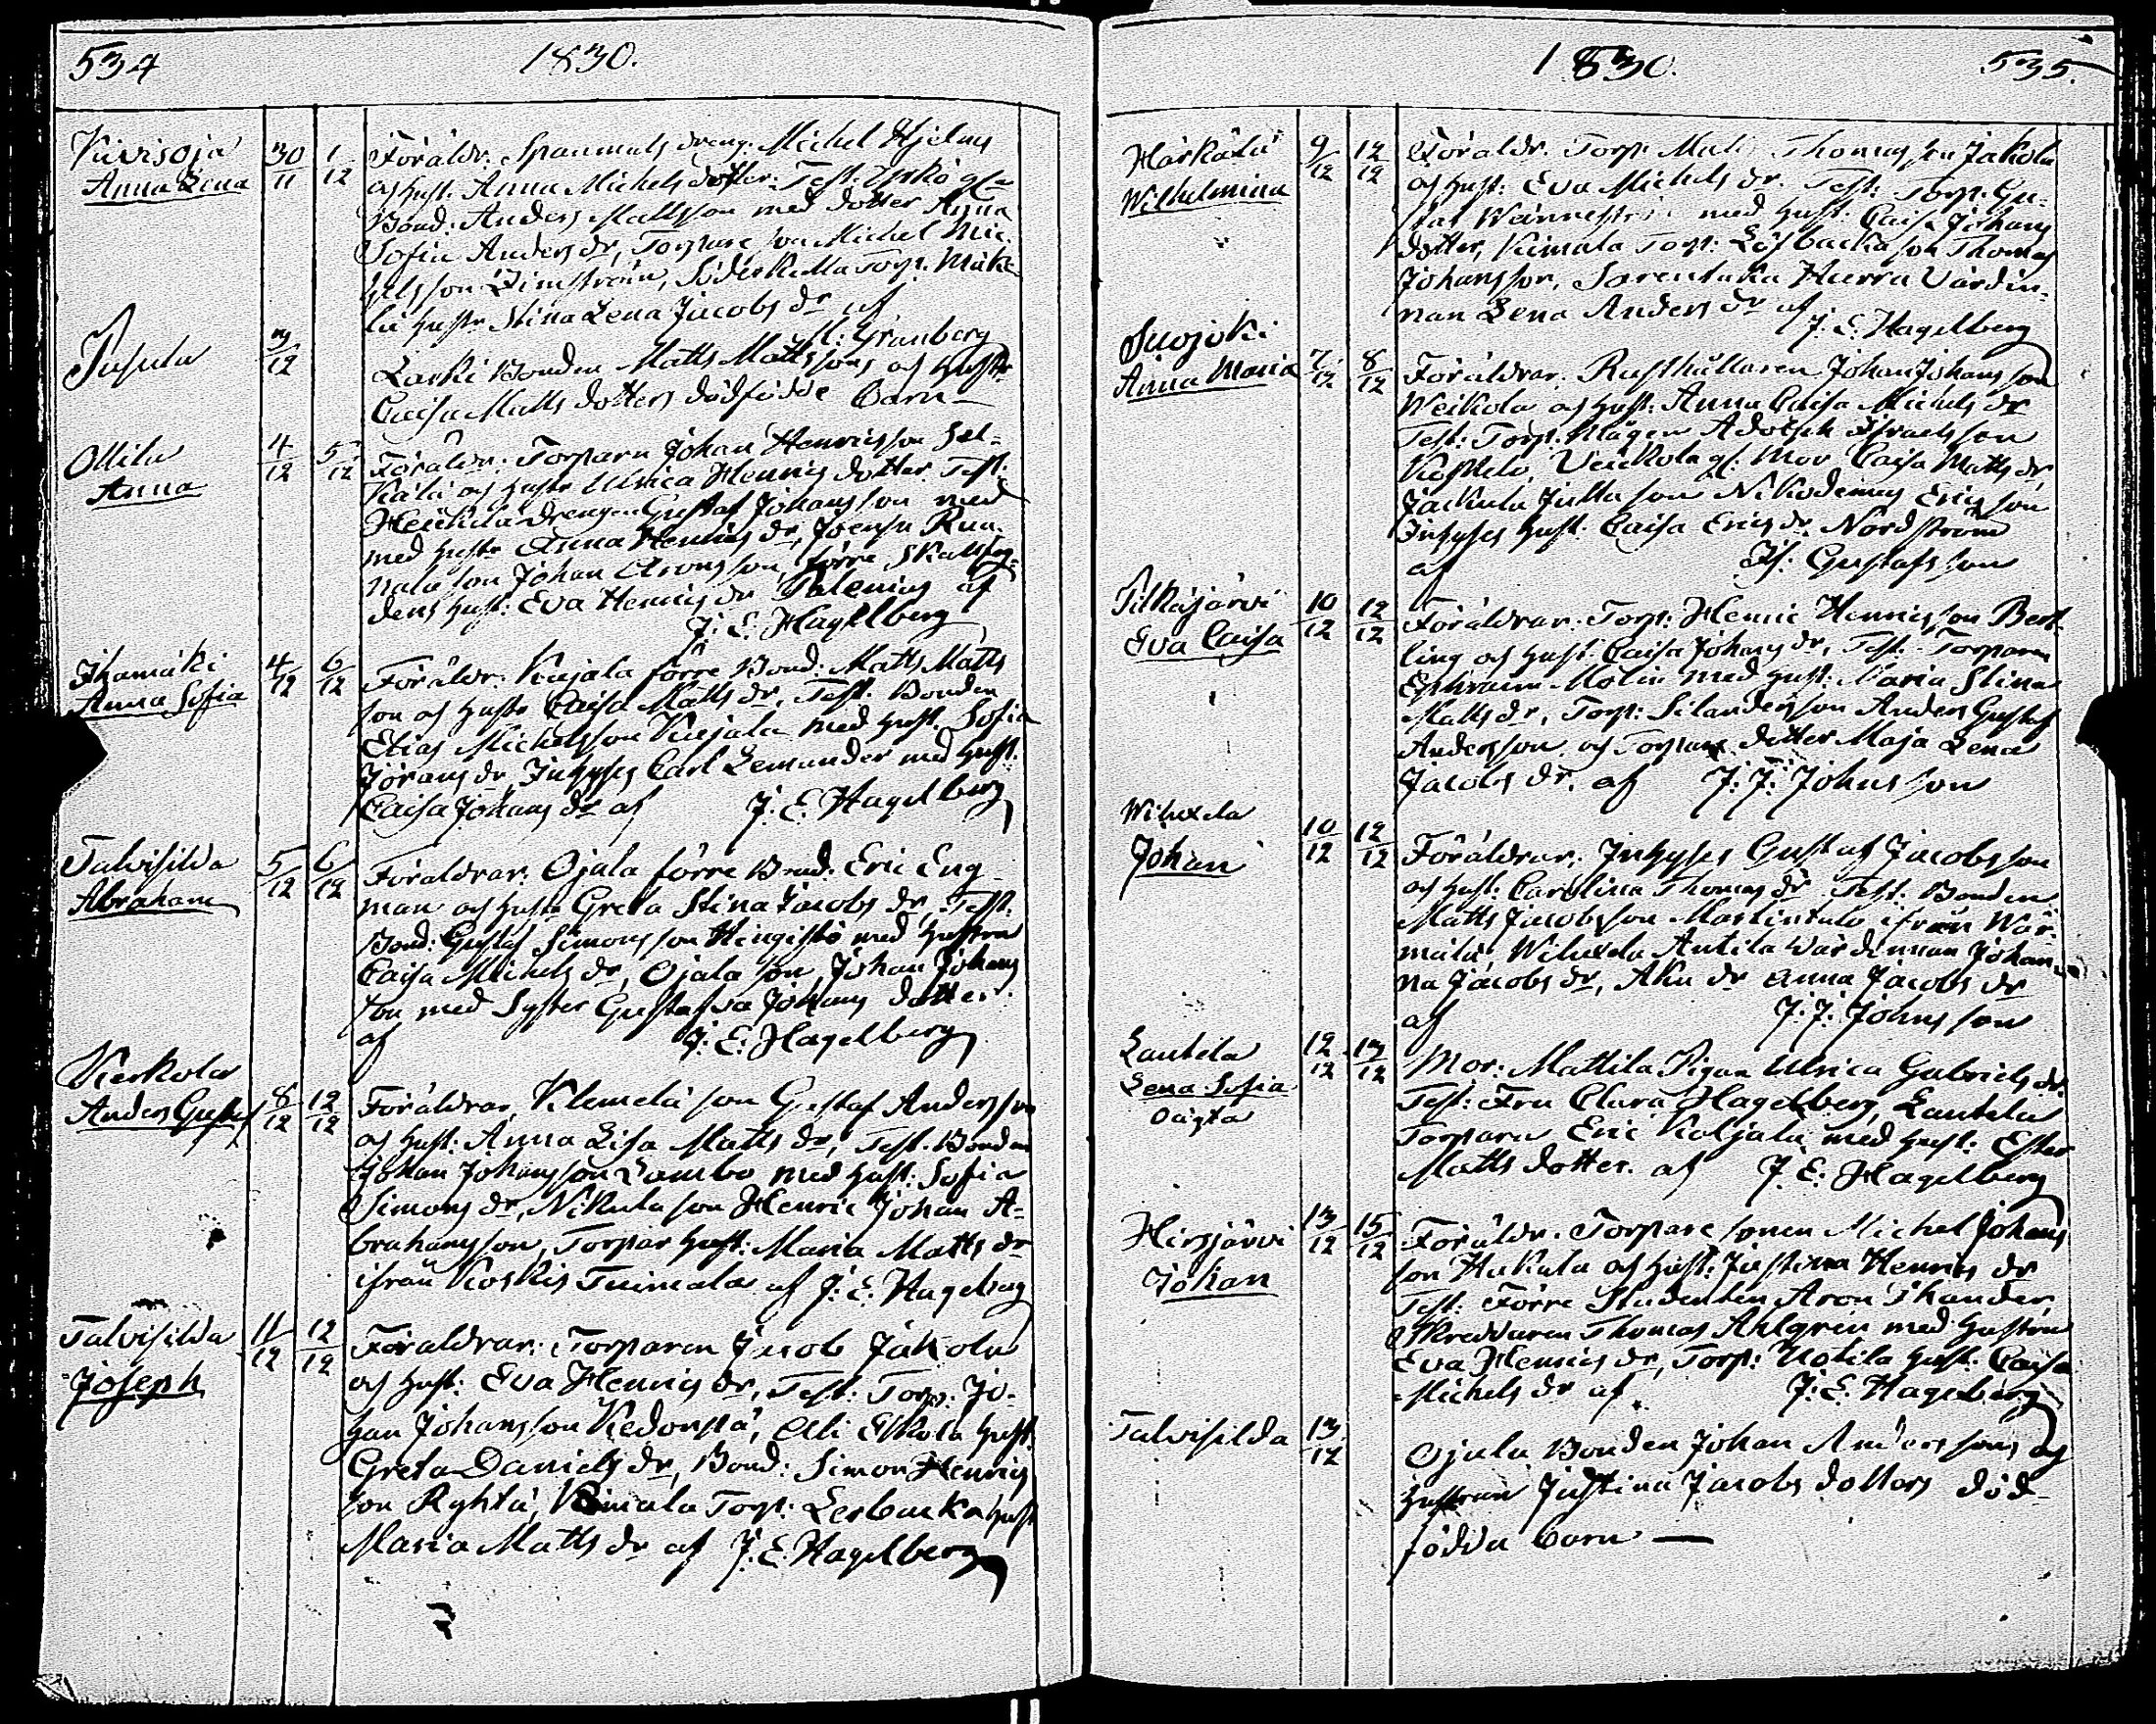 534 1830.
Kuvisoja 30/11 1/12 Föräldr. Spanmåls dreng: Michel Hjelms
Anna Lena og hust. Anna Michels dotter. Test:
Bond: Anders Mattsson med dotter Anna
Sofia Anders dr, Torpare son Michel Mic-
helsson Limström, Torp. Mäke-
lä hustr Stina Lena Jacobs dr af
Granberg
Pusula 3/12 Larki Bonden Matts Mattssons og hustr
Caisa Matts dotters dödfödde barn —
Ollila 4/12 5/12 Föräldr. Torparn Johan Henricsson Sel-
Anna kälä og hustr Ulrica Henrics dotter. Test:
Heikkilä drengen Gustaf Johansson med
med hustr Anna Henrics dr, Joensu Run-
nala son Johan Aronsson, förre Skallfog-
dens hust: Eva Henrics dr Palenius af
J: E: Hagelberg
Ihamäki 4/12 6/12 Föräldr. Kujala förre Bond: Matts Matts
Anna Sofia son og hustr Caisa Matts dr, Test. Bonden
Elias Michelsson Kujala med hust. Sofia
Jörans dr, Inhyses Carl Lemander med hust:
Caisa Johans dr af J: E: Hagelberg
Talvisilda 5/12 6/12 Föräldrar: Ojala förre Bond: Eric Eng-
Abraham man og hustr Greta Stina Jacobs dr, Test:
Bond: Gustaf Simonsson Hingistö med hustrn
Caisa Michels dr, Ojala son Johan Johans
son med Syster Gustafva Johans dotter.
af J: E: Hagelberg
Kerkola
Anders Gustaf 8/12 12/12 Föräldrar, Klemelä son Gustaf Andersson
og hust: Anna Lisa Matts dr, Test. Bonden
Johan Johansson Lambo med hust: Sofia
Simons dr, Nikula son Henric Johan A-
brahamsson, Torpar hust: Maria Matts dr
ifrån Koskis Tuimala af J: E: Hagelberg
Talvisilda 11/12 12/12 Föräldrar: Torparen Jacob Jakola
Joseph og hust: Eva Henrics dr, Test: Torp: Jo-
han Johansson Kedonpä, Ali Eskola hust
Greta Daniels dr, Bond: Simon Henrics
son Ryhtä, Kimala Torp: Lerbacka hust
Maria Matts dr af J: E: Hagelberg
1830. 535.
Härkälä 9/12 12/12 Föräldr. Torp. Thomas son Jakola
Wilhelmina og hust: Eva Michels dr. Test: Torp: Gu-
med hust: Caisa Johans
dotter, Kimala Torp: Löfbacka son Thomas
Johansson, Sarentaka Hurra Värdin-
nan Lena Anders dr af
J: E: Hagelberg
Suojoki
Anna Maria 7/12 8/12 Föräldrar: Rusthållaren Johan Johansson
Weikola og hust: Anna Caisa Michels dr
Test: Torp. Mågen Adolph Israelsson
Koskelo, Veickola gl: Mor Caisa Matts dr,
Jackula Jutta son Nikodemus Ericsson
Inhyses hust: Caisa Erics dr Nordström
af Is: Gustafsson
Pitkäjärvi 10/12 12/12 Föräldrar: Torp: Henric Henricsson Bert-
Eva Caisa ling og hust: Caisa Johans dr, Test: Torparen
Ephraim Molin med hust: Maria Stina
Matts dr, Torp: Silanders son Anders Gustaf
Andersson og Torpare dotter Maja Lena
Jacobs dr. af J: J: Johnsson
Wiluxela
Johan 10/12 12/12 Föräldrar: Inhyses Gustaf Jacobsson
og hust: Carolina Thomas dr Test: Bonden
Matts Jacobsson Markintalo ifrån Wär-
mälä, Wiluxela Antila Värdinnan Johan-
na Jacobs dr, Aku dr Anna Jacobs dr
af J: J: Johnsson
Lautela 12/12 13/12 Mor: Mattila Pigan Ulrica Gabriels dr.
Lena Sofia Test: Fru Clara Hagelberg, Lautela
oägta Torparn Eric Koljala med hust: Ester
Matts dotter. af J: E: Hagelberg
Hirsjärvi 13/12 15/12 Föräldr. Torpare sonen Michel Johans
Johan son Hukula og hust: Justina Henrics dr
Test: Förre Studenten Aron Thander,
Skreddaren Thomas Ahlgren med hustrn
Eva Henrics dr, Torp: Uotila hust: Caisa
Michels dr af J: E: Hagelberg
Talvisilda 13/12 Ojala Bonden Johan Anderssons og
hustrun Justina Jacobs dotters död-
födda barn —